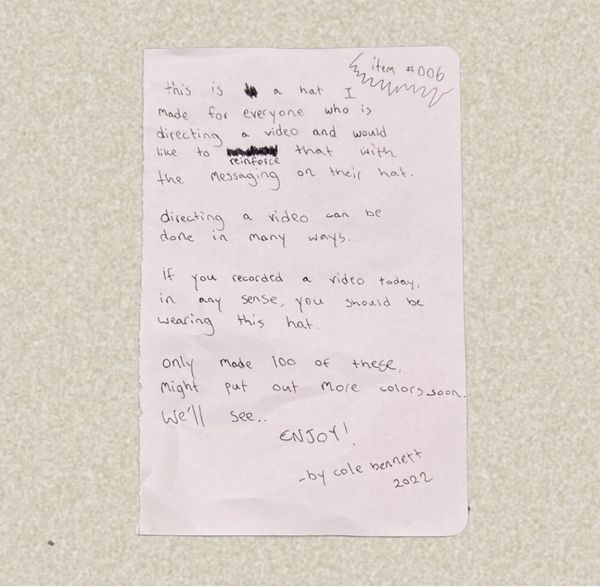 item #006
this is a hat I
made for everyone who is
directing a video and would
like to reinforce that with
the messaging on their hat.
directing a video can be
done in many ways...
if you recorded a video today,
in any sense, you should be
wearing this hat.
only made 100 of these,
might put out more colors soon.
we'll see..
ENJOY!
-by cole bennett
2022